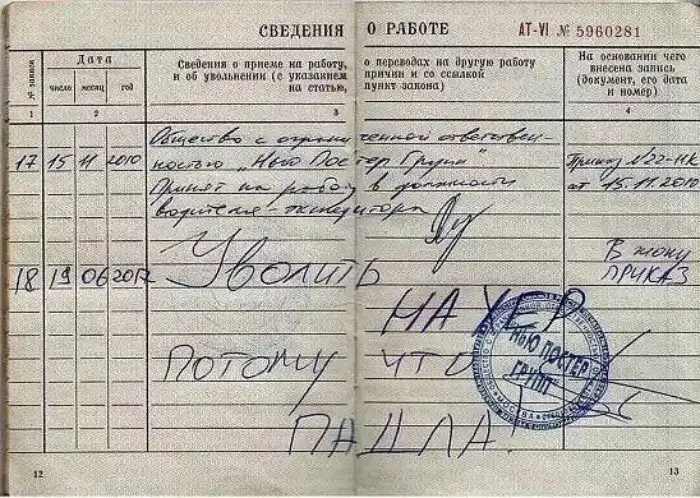 СВЕДЕНИЯ О РАБОТЕ AT-VI № 5960281
№ записи
Дата
число месяц год
Сведения о приеме на работу, о переводах на другую работу
и об увольнении (с указанием причин и со ссылкой
на статью, пункт закона)
На основании чего
внесена запись
(документ, его дата
и номер)
1 2 3 4
Общество с ограниченной ответствен-
17 15 11 2010 ностью „Нью Постер Групп" Приказ N22-НК
Принят на работу в должности от 15.11.2010
водителя-экспедитора
В жопу
18 19 06 2012 Уволить ПРИКАЗ
НАХЕР
ПОТОМУ ЧТО
ПАДЛА!
НЬЮ ПОСТЕР
ГРУПП
МОСКВА
12 13